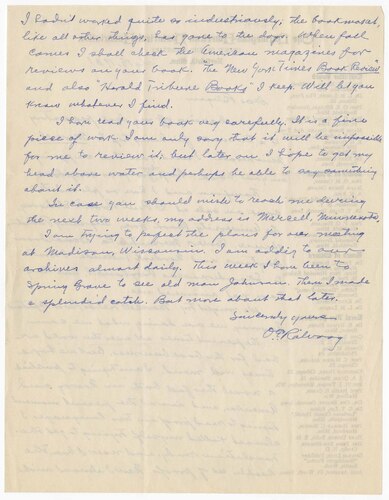 I hadn't worked quite so industriously, the book market
like all other things, has gone to the dogs. When fall
comes I shall check the American magazines for
reviews on your book. "The New York Times Book Review"
and also Herald Tribune Books" I keep. Will let you
know whatever I find.
I have read your book very carefully. It is a fine
piece of work. I am only sorry that it will be impossible
for me to review it; but later on I hope to get my
head above water and perhaps be able to say something
about it.
In case you should wish to reach me during
the next two weeks, my address is Marcell, Minnesota.
I am trying to perfect the plans for our meeting
at Madison, Wisconsin. I am adding to our
archives almost daily. This week I have been to
Spring Grove to see old man Johnson. There I made
a splendid catch. But more about that later.
Sincerely yours
O.E. Rölvaag